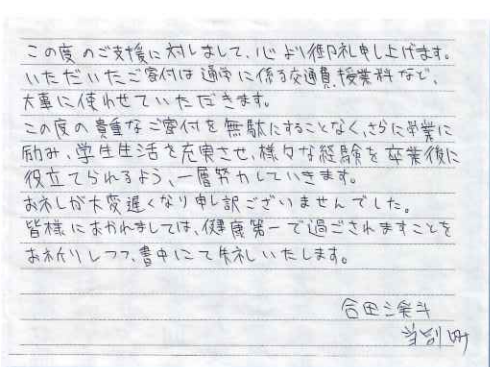 この度のご支援に対しまして、心より御礼申し上げます。
いただいたご寄付は通学に係る交通費、授業料など、
大事に使わせていただきます。
この度の貴重なご寄付を無駄にすることなく、さらに学業に
励み、学生生活を充実させ、様々な経験を卒業後に
役立てられるよう、一層努力していきます。
お礼が大変遅くなり申し訳ございませんでした。
皆様におかれましては、健康第一で過ごされますことを
お祈りしつつ、書中にて失礼いたします。